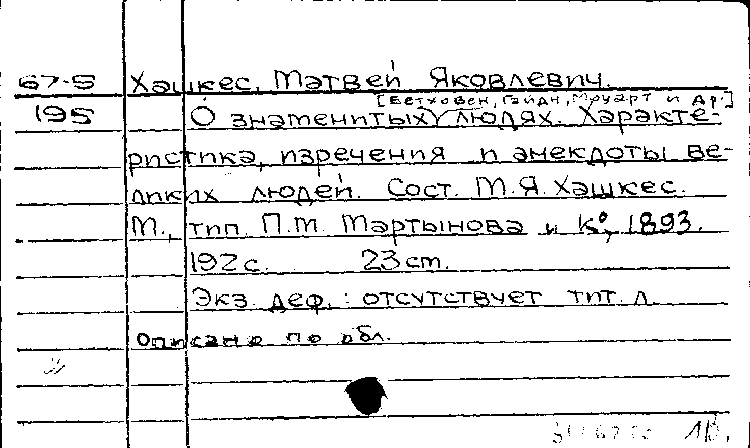 67-5 Хашкес, Матвей Яковлевич.
[Бетховен, Гайдн, Моцарт и др.]
195 О знаменитых людях. Характе-
ристика, изречения и анекдоты ве-
ликих людей. Сост. М.Я. Хашкес.
М., тип. П.М. Мартынова и К°, 1893.
192 с. 23 ст.
Экз. деф.: отсутствует тит. л.
Описано по обл.